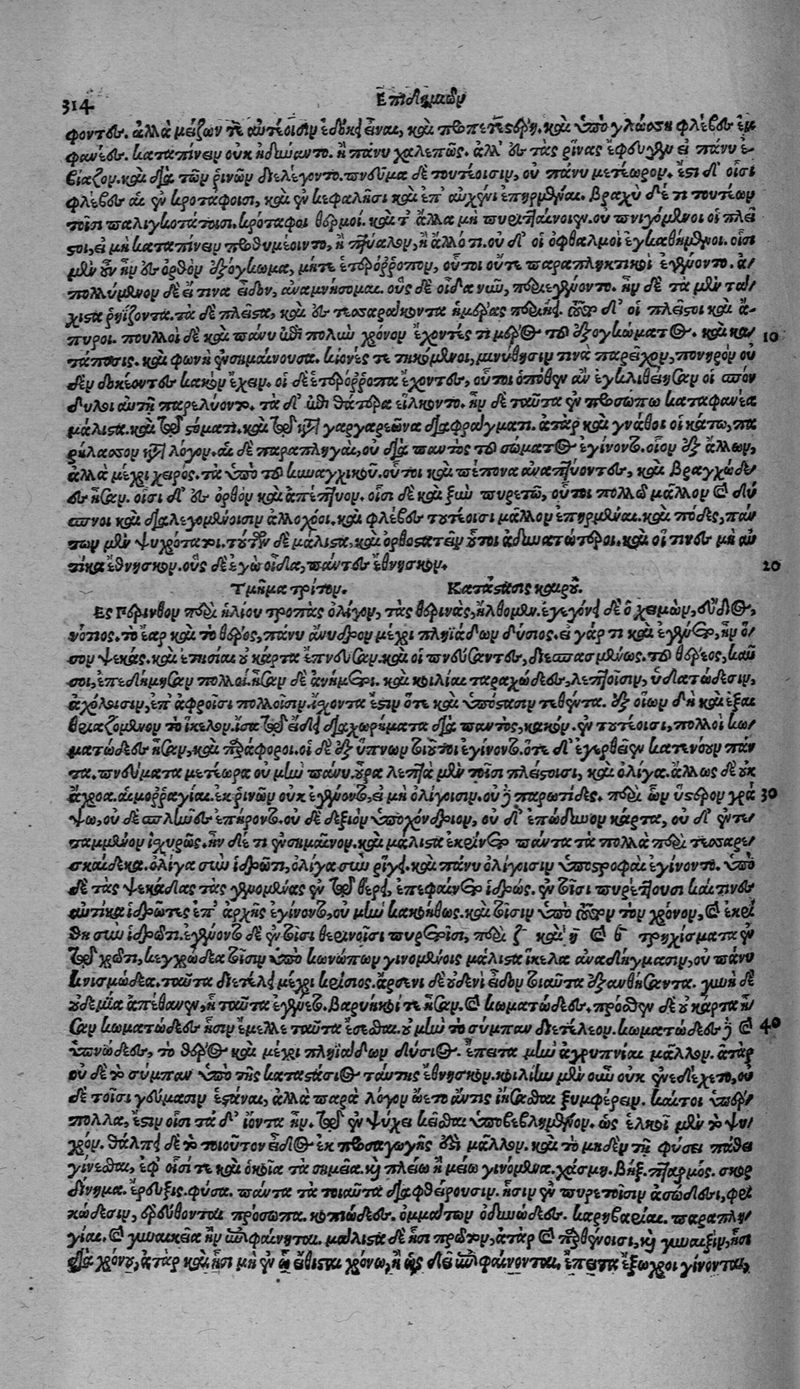 314 Επιδημιῶν
φοντες. ἀλλὰ μέζων τε αὐτέοισιν ἐδόκει εἶναι, καὶ προπετεστέρη. καὶ ὑπὸ γλώσσῃ φλέβες ἐμ
φανέες. καταπίνειν οὐκ ἠδύναντο. ἢ πάνυ χαλεπῶς. ἀλλ' ἐς τὰς ῥῖνας ἔφευγεν εἰ πάνυ ἐ-
βιάζον. καὶ διὰ τῶν ῥινῶν διελέγοντο. πνεῦμα δὲ τουτέοισιν, οὐ πάνυ μετέωρον. ἔστι δ' οἷσι
φλέβες αἱ ἐν κροτάφοισι, καὶ ἐν κεφαλῇσι καὶ ἐπ' αὐχένι ἐπηρμέναι. βραχὺ δέ τι τουτέων
τοῖσι παλιγκοτάτοισι. κρόταφοι θερμοί. καὶ τ' ἄλλα μὴ πυρεταίνοιεν. οὐ πνιγόμενοι οἱ πλεῖ
στοι, εἰ μὴ καταπίνειν προθυμέοιντο, ἢ πτύαλον, ἢ ἄλλό τι. οὐδ' οἱ ὀφθαλμοὶ ἐγκαθήμενοι. οἷσι
μὲν οὖν ἦν ἐς ὀρθὸν ἐξόγκωμα, μήτε ἑτερόῤῥοπον, οὗτοι οὔτε παραπληκτικοὶ ἐγένοντο. ἀ-
πολλύμενον δὲ εἴ τινα εἶδον, ἀναμνήσομαι. οὓς δὲ οἶδα νῦν, περιεγένοντο. ἦν δὲ τὰ μὲν τα-
χιστα ῥηίζοντα. τὰ δὲ πλεῖστα, καὶ ἐς τεσσαράκοντα ἡμέρας περιῄει. τούτων δ' οἱ πλεῖστοι καὶ ἄ-
πυροι. πουλλοὶ δὲ καὶ πάνυ ἐπὶ πολὺν χρόνον ἔχοντές τι μέρος τοῦ ἐξογκώματος. καὶ κα- 10
τάποσις. καὶ φωνὴ ἐνσημαίνουσα. κίονές τε τηκόμενοι, μινύθησίν τινα παρεῖχον, πονηρὸν οὐ
δὲν δοκέοντες κακὸν ἔχειν. οἱ δὲ ἑτερόῤῥοπα ἔχοντες, οὗτοι ὁπόθεν ἂν ἐγκλιθείησαν οἱ σπόν
δυλοι αὐτῇ παρελύοντο. τὰ δ' ἐπὶ θάτερα εἵλκοντο. ἦν δὲ ταῦτα ἐν προσώπῳ καταφανέα
μάλιστα. καὶ τῷ στόματι. καὶ τῷ κατὰ γαργαρεῶνα διαφράγματι. ἀτὰρ καὶ γνάθοι οἱ κάτω, πα
ρήλασσον κατὰ λόγον. αἱ δὲ παραπληγίαι, οὐ διὰ παντὸς τοῦ σώματος ἐγίνοντο. οἷον ἐξ ἄλλων,
ἀλλὰ μέχρι χειρός. τὰ ὑπὸ τοῦ κυναγχικοῦ. οὗτοι καὶ πέπονα ἀναπτύοντες, καὶ βραγχώδε-
ες ἦσαν. οἷσι δ' ἐς ὀρθὸν καὶ ἀπέπτυον. οἷσι δὲ καὶ ξὺν πυρετῷ, οὗτοι πολλῷ μᾶλλον καὶ δύ
σπνοι καὶ διαλεγομένοισιν ἀλλοχόοι. καὶ φλέβες τουτέοισι μᾶλλον ἐπηρμέναι. καὶ πόδες, πάν
των μὲν ψυχρότατοι. τούτων δὲ μάλιστα, καὶ ὀρθοστατεῖν οὗτοι ἀδυνατώτεροι. καὶ οἵτινες μὴ αὐ
τίκα ἔθνησκον. οὓς δὲ ἐγὼ οἶδα, πάντες ἔθνησκον. 20
Τμῆμα τρίτον. Κατάστασις καιροῦ.
Ες Πέρινθον περὶ ἡλίου τροπὰς ὀλίγον, τὰς θερινὰς, ἤλθομεν. ἐγεγόνει δὲ ὁ χειμὼν, εὔδιος,
νότιος. τὸ ἔαρ καὶ τὸ θέρος, πάνυ ἄνυδρον μέχρι πληϊάδων δύσιος. εἰ γάρ τι καὶ ἐγένετο, ἦν ὅ-
σον ψεκάς. καὶ ἐτησίαι οὐ κάρτα ἔπνευσαν. καὶ οἱ πνεύσαντες, διεσπασμένως. τοῦ θέρεος, καῦ
σοι, ἐπεδήμησαν πολλοί. ἦσαν δὲ ἀνήμετοι. καὶ κοιλίαι ταραχώδεες, λεπτοῖσιν, ὑδατώδεσιν,
ἀχόλοισιν, ἐπ' ἀφροῖσι πολλοῖσιν. ἔχοντα ἔστιν ὅτε καὶ ὑπόστασιν τεθέντα. ἐξ οἵων δὴ καὶ ἐξαι
θριαζομένου τὸ ἴκελον. ἴσα τῷ εἴδει διαχωρήματα διὰ παντὸς, κακόν. ἐν τουτέοισι, πολλοὶ κω-
ματώδεες ἦσαν, καὶ παράφοροι. οἱ δὲ ἐξ ὕπνων τοιοῦτοι ἐγίνοντο. ὅτε δ' ἐγερθεῖεν κατενόουν πάν
τα. πνεύματα μετέωρα οὐ μὴν πάνυ. οὖρα λεπτὰ μὲν τοῖσι πλείστοισι, καὶ ὀλίγα. ἄλλως δὲ οὐκ
ἄχροα. αἱμοῤῥαγίαι. ἐκ ῥινῶν οὐκ ἐγένοντο, εἰ μὴ ὀλίγοισιν. οὐδὲ παρωτίδες. περὶ ὧν ὕστερον γρά 30
ψω, οὐδὲ σπλῆνες ἐπήροντο. οὐδὲ δεξιὸν ὑποχόνδριον, οὐδ' ἐπώδυνον κάρτα, οὐδ' ἐντε-
ταμμένον ἰσχυρῶς. ἦν δέ τι ἐνσημαῖνον. καὶ μάλιστα ἐκρίνετο πάντα τὰ πολλὰ περὶ τεσσαρε-
σκαίδεκα. ὀλίγα σὺν ἱδρῶτι, ὀλίγα σὺν ῥίγει. καὶ πάνυ ὀλίγοισιν ὑποστροφαὶ ἐγίνοντο. ὑπὸ
δὲ τὰς ψεκάδας τὰς γενομένας ἐν τῷ θέρει, ἐπεφαίνετο ἱδρώς. ἐν τοῖσι πυρετοῖσι καί τινες
αὐτίκα ἱδρῶτες ἐπ' ἀρχῆς ἐγίνοντο, οὐ μὴν κακοήθως. καὶ τοῖσιν ὑπὸ τοῦτον τὸν χρόνον, καὶ ἐκρί
θη σὺν ἱδρῶτι. ἐγένοντο δὲ ἐν τοῖσι θερινοῖσι πυρετοῖσι, περὶ ζ καὶ ηʹ καὶ θ τρηχίσματα ἐν
τῷ χρωτὶ, κεγχρώδεα τοῖσιν ὑπὸ κωνώπων γινομένοις μάλιστα ἴκελα ἀναδήγμασιν, οὐ πάνυ
κνισμώδεα. ταῦτα διετέλει μέχρι κρίσιος. ἄρσενι δὲ οὐδενὶ εἶδον τοιαῦτα ἐξανθήσαντα. γυνὴ δὲ
οὐδεμία ἀπέθανεν, ᾗ ταῦτα ἐγένετο. βαρυήκοοί τε ἦσαν. καὶ κωματώδεες. πρόσθεν δὲ οὐ κάρτα ἦ
σαν κωματώδεες ᾗσιν ἔμελλε ταῦτα ἔσεσθαι. οὐ μὴν τὸ σύμπαν διετέλεον. κωματώδεες δὲ καὶ 40
ὑπνώδεες, τὸ θέρος καὶ μέχρι πληϊάδων δύσιος. ἔπειτα μὴν ἀγρυπνίαι μᾶλλον. ἀτὰρ
οὐδὲ τὸ σύμπαν ὑπὸ τῆς καταστάσιος ταύτης ἔθνησκον. κοιλίην μὲν οὖν οὐκ ἐνεδέχετο, οὐ
δὲ τοῖσι γεύμασιν ἱστάναι, ἀλλὰ παρὰ λόγον ᾤετο ἄν τις ἰήσασθαι ξυμφέρειν. καίτοι ὑπερ-
πολλὰ, ἔστιν οἷσι τὰ δ' ἰόντα ἦν. τῷ ἐν ψύχει κεῖσθαι ὑποβεβλημένον. ὡς ἕλκοι μὲν τὸ ψυ-
χρόν. θάλπει δὲ τὸ τοιοῦτον εἶδος ἐκ προσαγωγῆς δεῖ μᾶλλον. καὶ τὸ μηδὲν τῇ φύσει πάθει
γίνεσθαι, ἐφ' οἷσί τε καὶ ὁκοῖα τὰ σημεῖα. καὶ πλείω ἢ μείω γινόμενα. χάσμη. βὴξ. πταρμός. σκορ
δίνημα. ἔρευξις. φῦσα. πάντα τὰ τοιαῦτα διαφθέρουσιν. ᾗσιν ἐν πυρετοῖσιν ἀσώδεσι, φρι
κώδεσιν, ἐρεύθονται πρόσωπα. κοπιώδεες. ὀμμάτων ὀδυνώδεες. καρηβαρίαι. παραπλη-
γίαι. καὶ γυναικεῖα ἢν ἐπιφαίνηται. μάλιστα δὲ ᾗσι πρῶτον, ἀτὰρ καὶ παρθένοισι, καὶ γυναιξὶν, ᾗσι
διὰ χρόνου, ἀτὰρ καὶ ᾗσι μὴ ἐν ᾧ εἴθισται χρόνῳ, ἢ ὡς δεῖ ἐπιφαίνονται, ἔπειτα ἔξωχροι γίνονται,